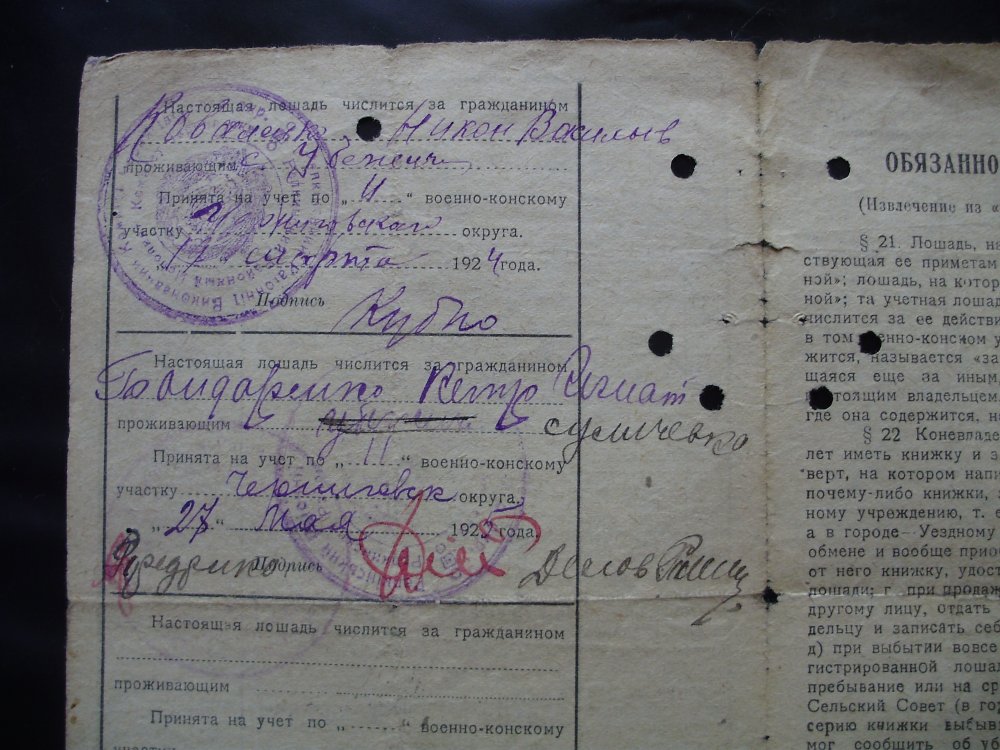 Настоящая лошадь числится за гражданином
Никон Васильев
проживающим с.
Принята на учет по „ 11 “ военно-конскому
участку Черниговского округа.
17 марта 1924 года.
Подпись
Кубко
Настоящая лошадь числится за гражданином
Бондаренко Петр Игнат
проживающим
Принята на учет по „ 11 “ военно-конскому
участку Черниговск округа.
„ 27 “ мая 1925 года.
Подпись
Настоящая лошадь числится за гражданином
проживающим
Принята на учет по „ “ военно-конскому
участку
ОБЯЗАННО
(Извлечение из «
§ 21. Лошадь, н
ствующая ее приметам
ной»; лошадь, на котор
ной»; та учетная лошад
числится за ее действи
в том военно-конском у
жится, называется «за
щаяся еще за иным,
стоящим владельцем,
где она содержится, н
§ 22 Коневладе
лет иметь книжку и з
верт, на котором напи
почему-либо книжки,
ному учреждению, т. е
а в городе—Уездному
обмене и вообще прио
от него книжку, удост
лошади; г при продаж
другому лицу, отдать
дельцу и записать себ
д) при выбытии вовсе
гистрированной лошад
пребывание или на ср
Сельский Совет (в гор
серию книжки выбыв
мог сообщить об уб